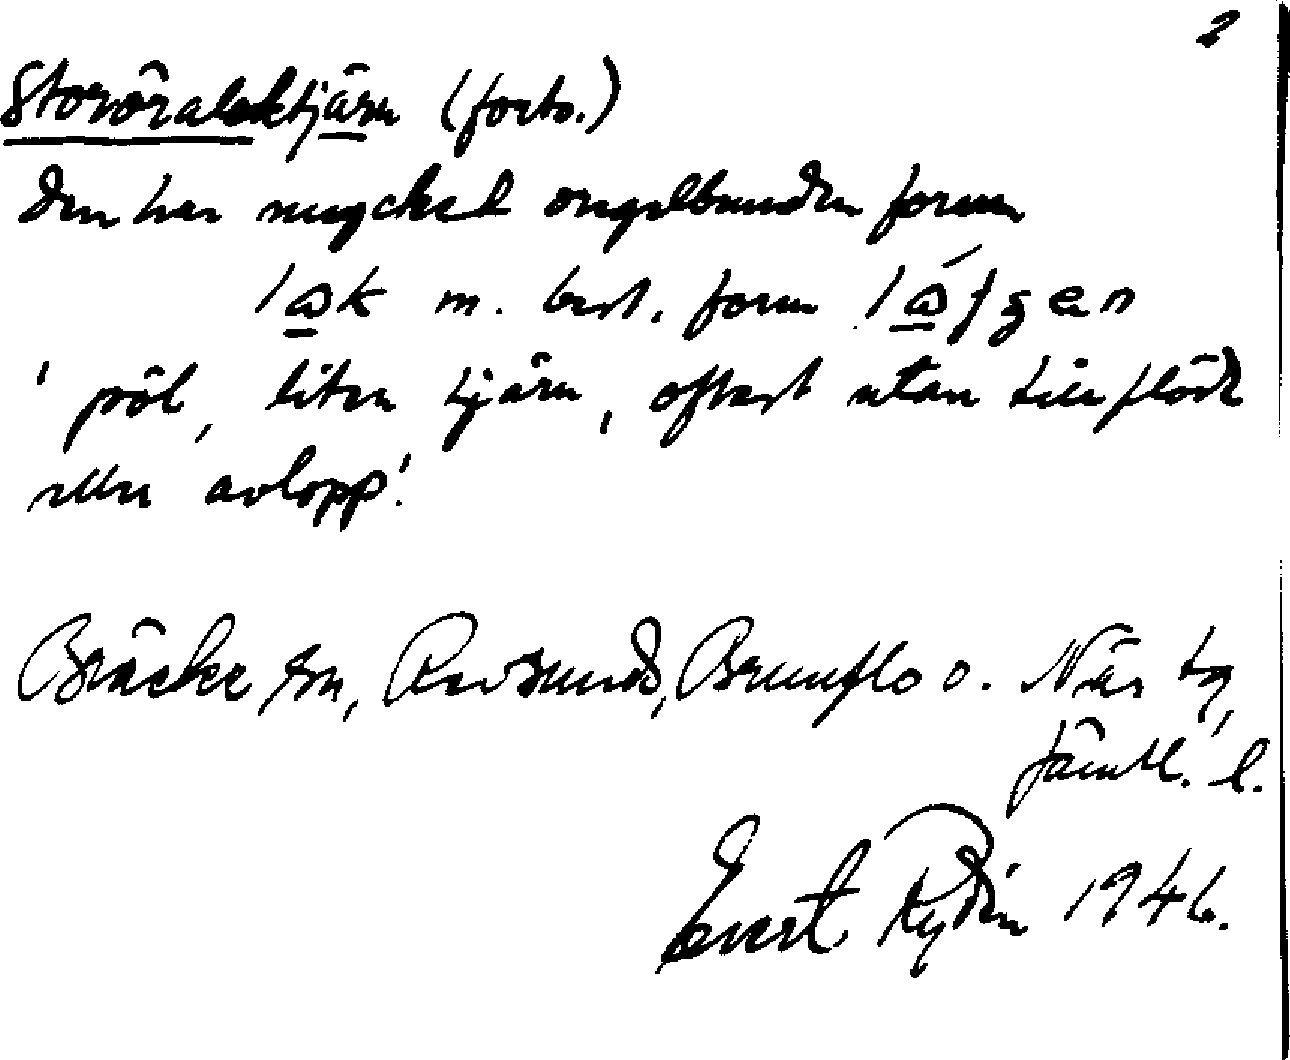 2
Storöralektjärn (forts.)
Den har mycket oregelbunden form
lak m. best. form lájgen
'pöl, liten tjärn, oftast utan tillflöde
eller avlopp'.
Bräcke sn, Revsunds, Brunflo o. Näs tg,
Jämtl. l.
Evert Rydin 1946.